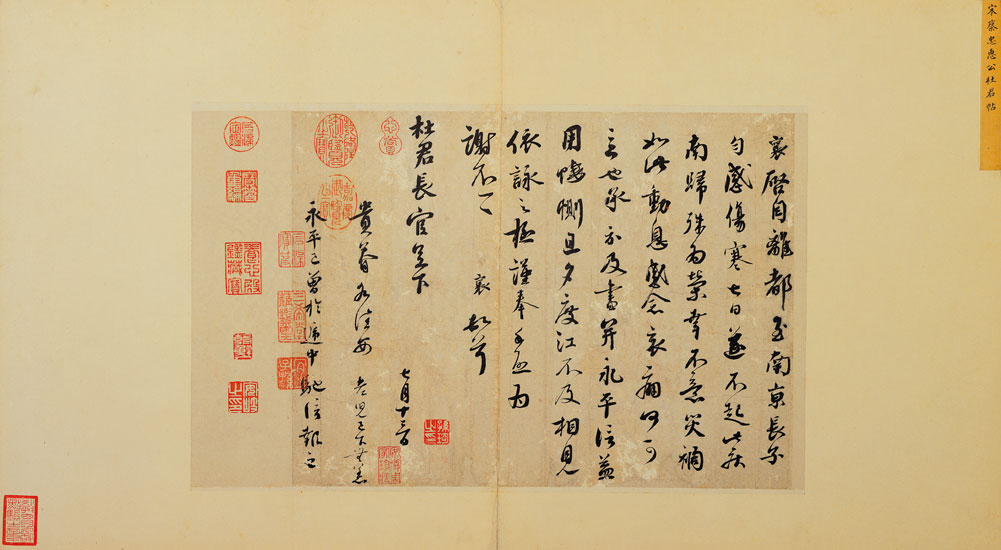 宋蔡忠惠公杜君帖
襄啓自離都至南京長子
勻感傷寒七日遂不起此疾
南歸殊為榮幸不意災禍
如此動息感念哀痛何可
言也承示及書并永平信益
用悽惻旦夕度江不及相見
依詠之極謹奉手啓為
謝不一一 襄頓首
杜君長官足下
七月十三日
貴眷各佳安
永平已曾於遞中馳信報之